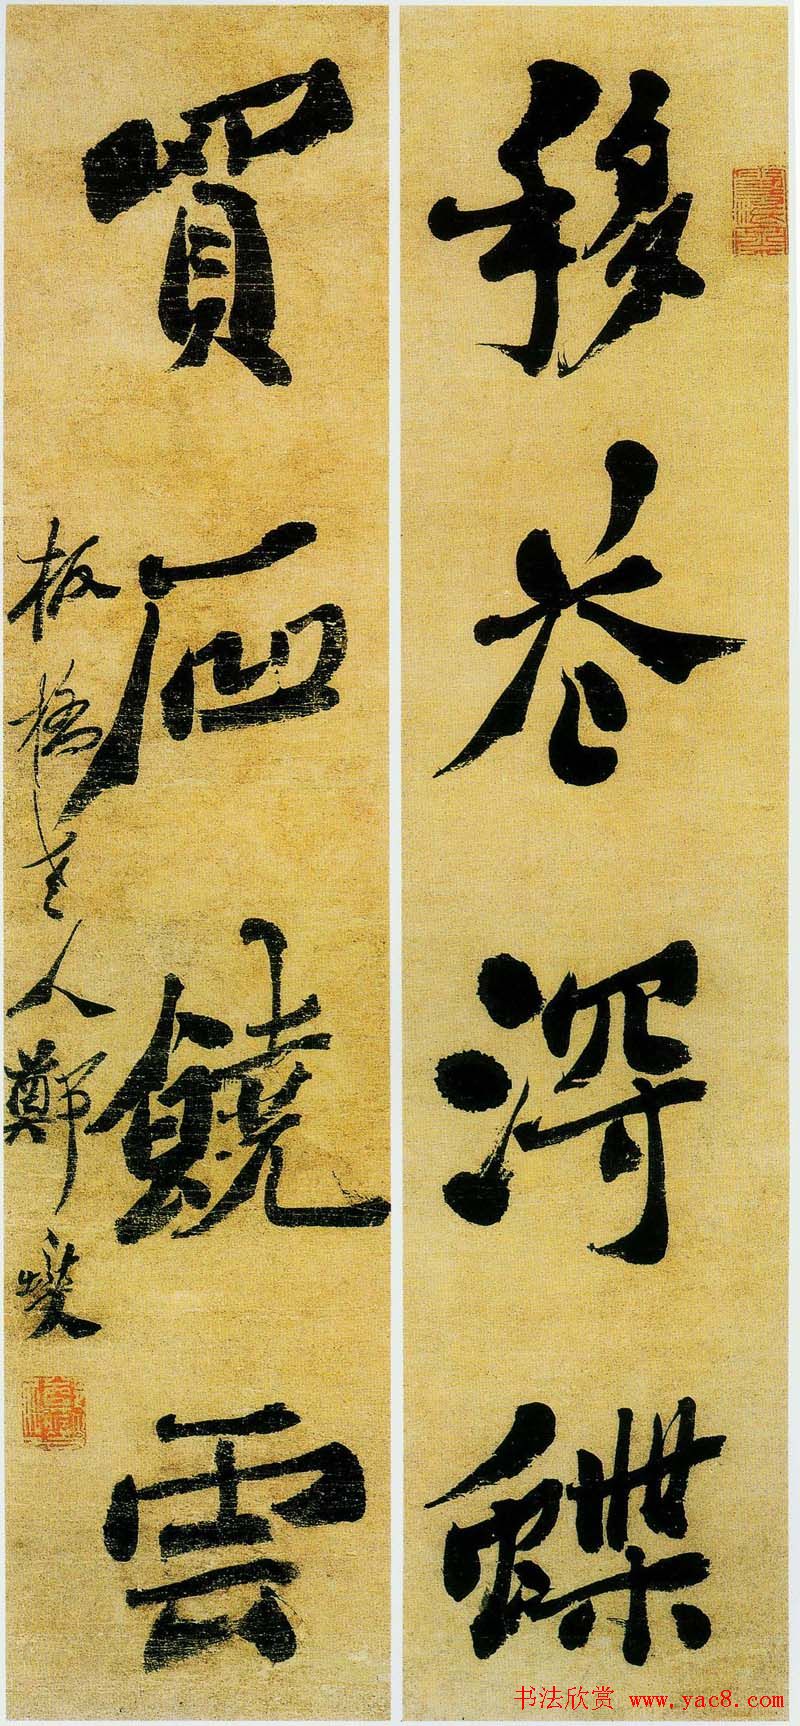 移花得蝶
買石饒雲
板橋老人鄭燮
书法欣赏 www.yac8.com